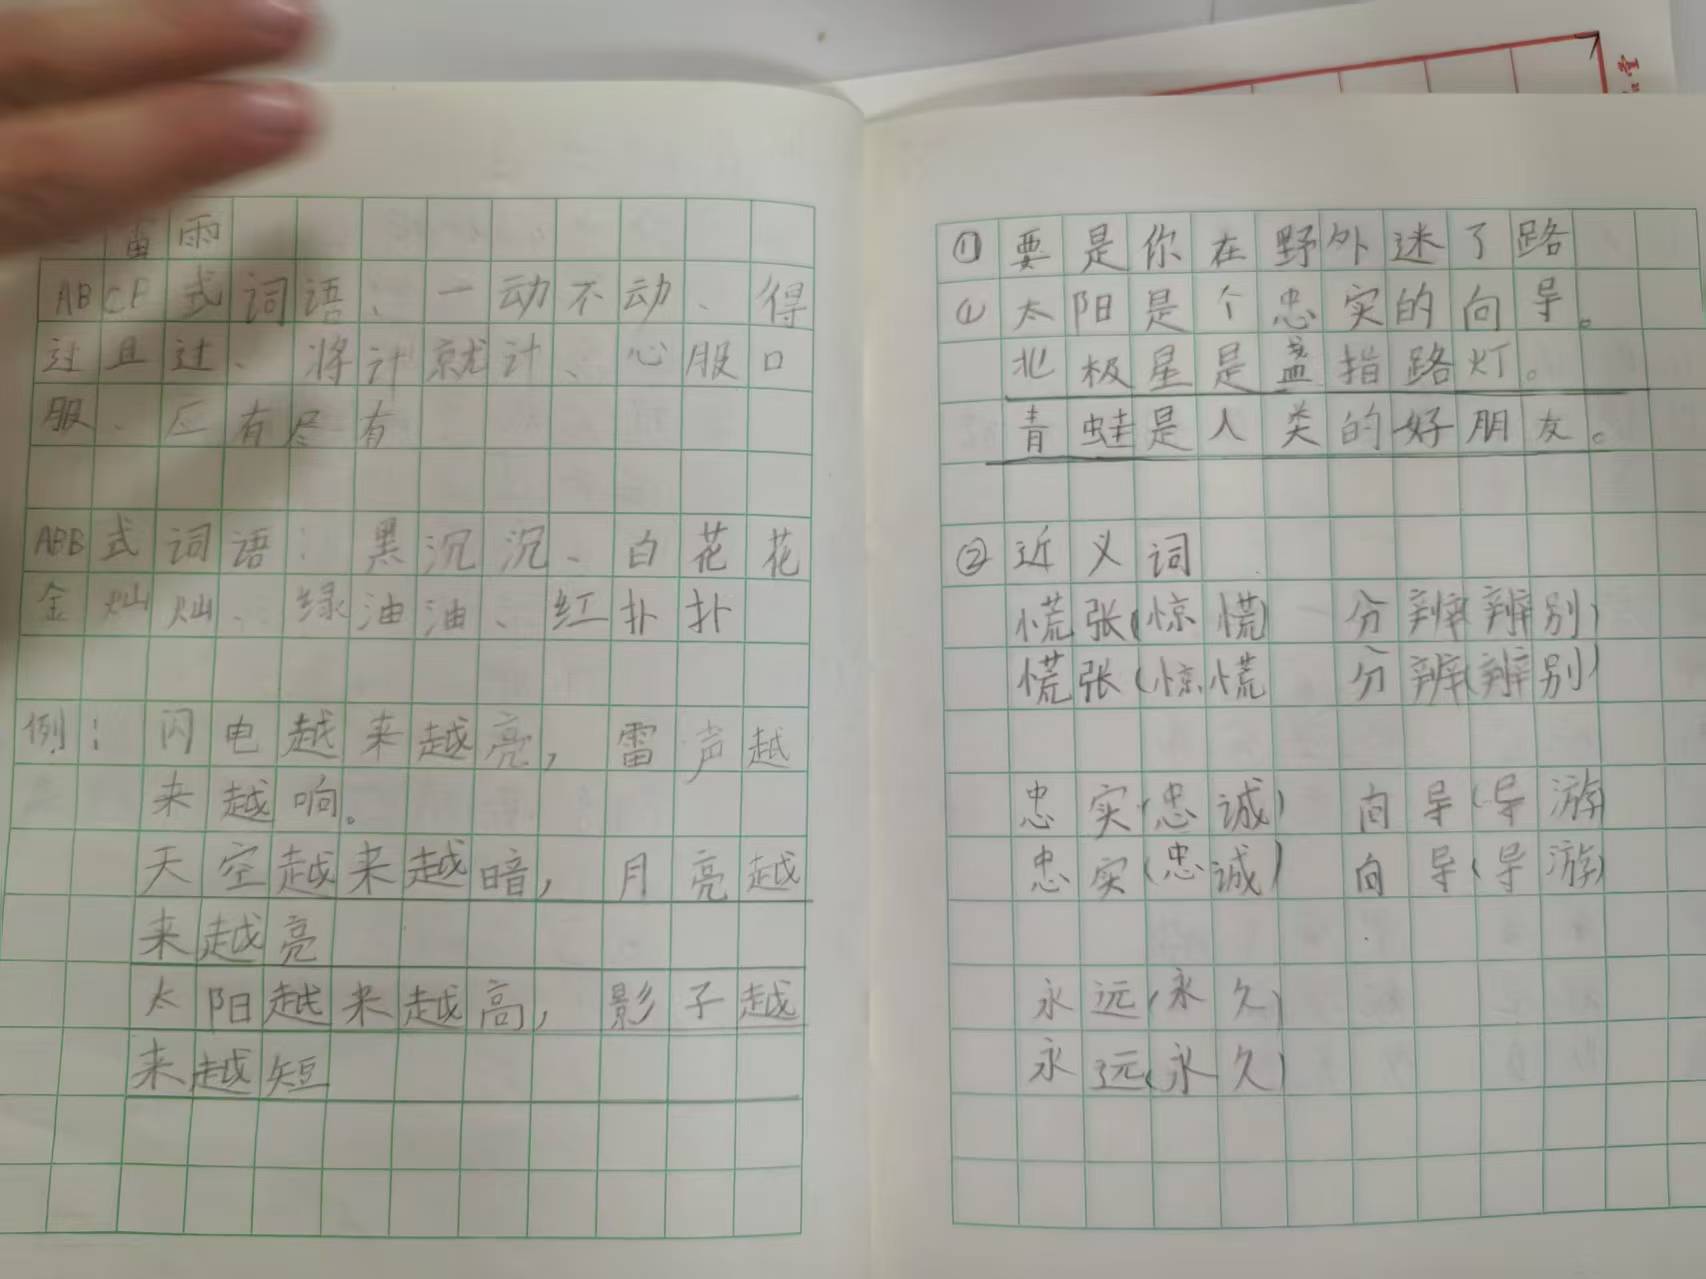 雷雨
ABCP式词语、一动不动、得
过且过、将计就计、心服口
服、应有尽有
ABB式词语:黑沉沉、白花花
金灿灿、绿油油、红扑扑
例:闪电越来越亮,雷声越
来越响。
天空越来越暗,月亮越
来越亮
太阳越来越高,影子越
来越短
⑰要是你在野外迷了路
①太阳是个忠实的向导。
北极星是盏指路灯。
青蛙是人类的好朋友。
②近义词
慌张(惊慌) 分辨(辨别)
慌张(惊慌 分辨(辨别)
忠实(忠诚) 向导(导游
忠实(忠诚) 向导(导游)
永远(永久)
永远(永久)